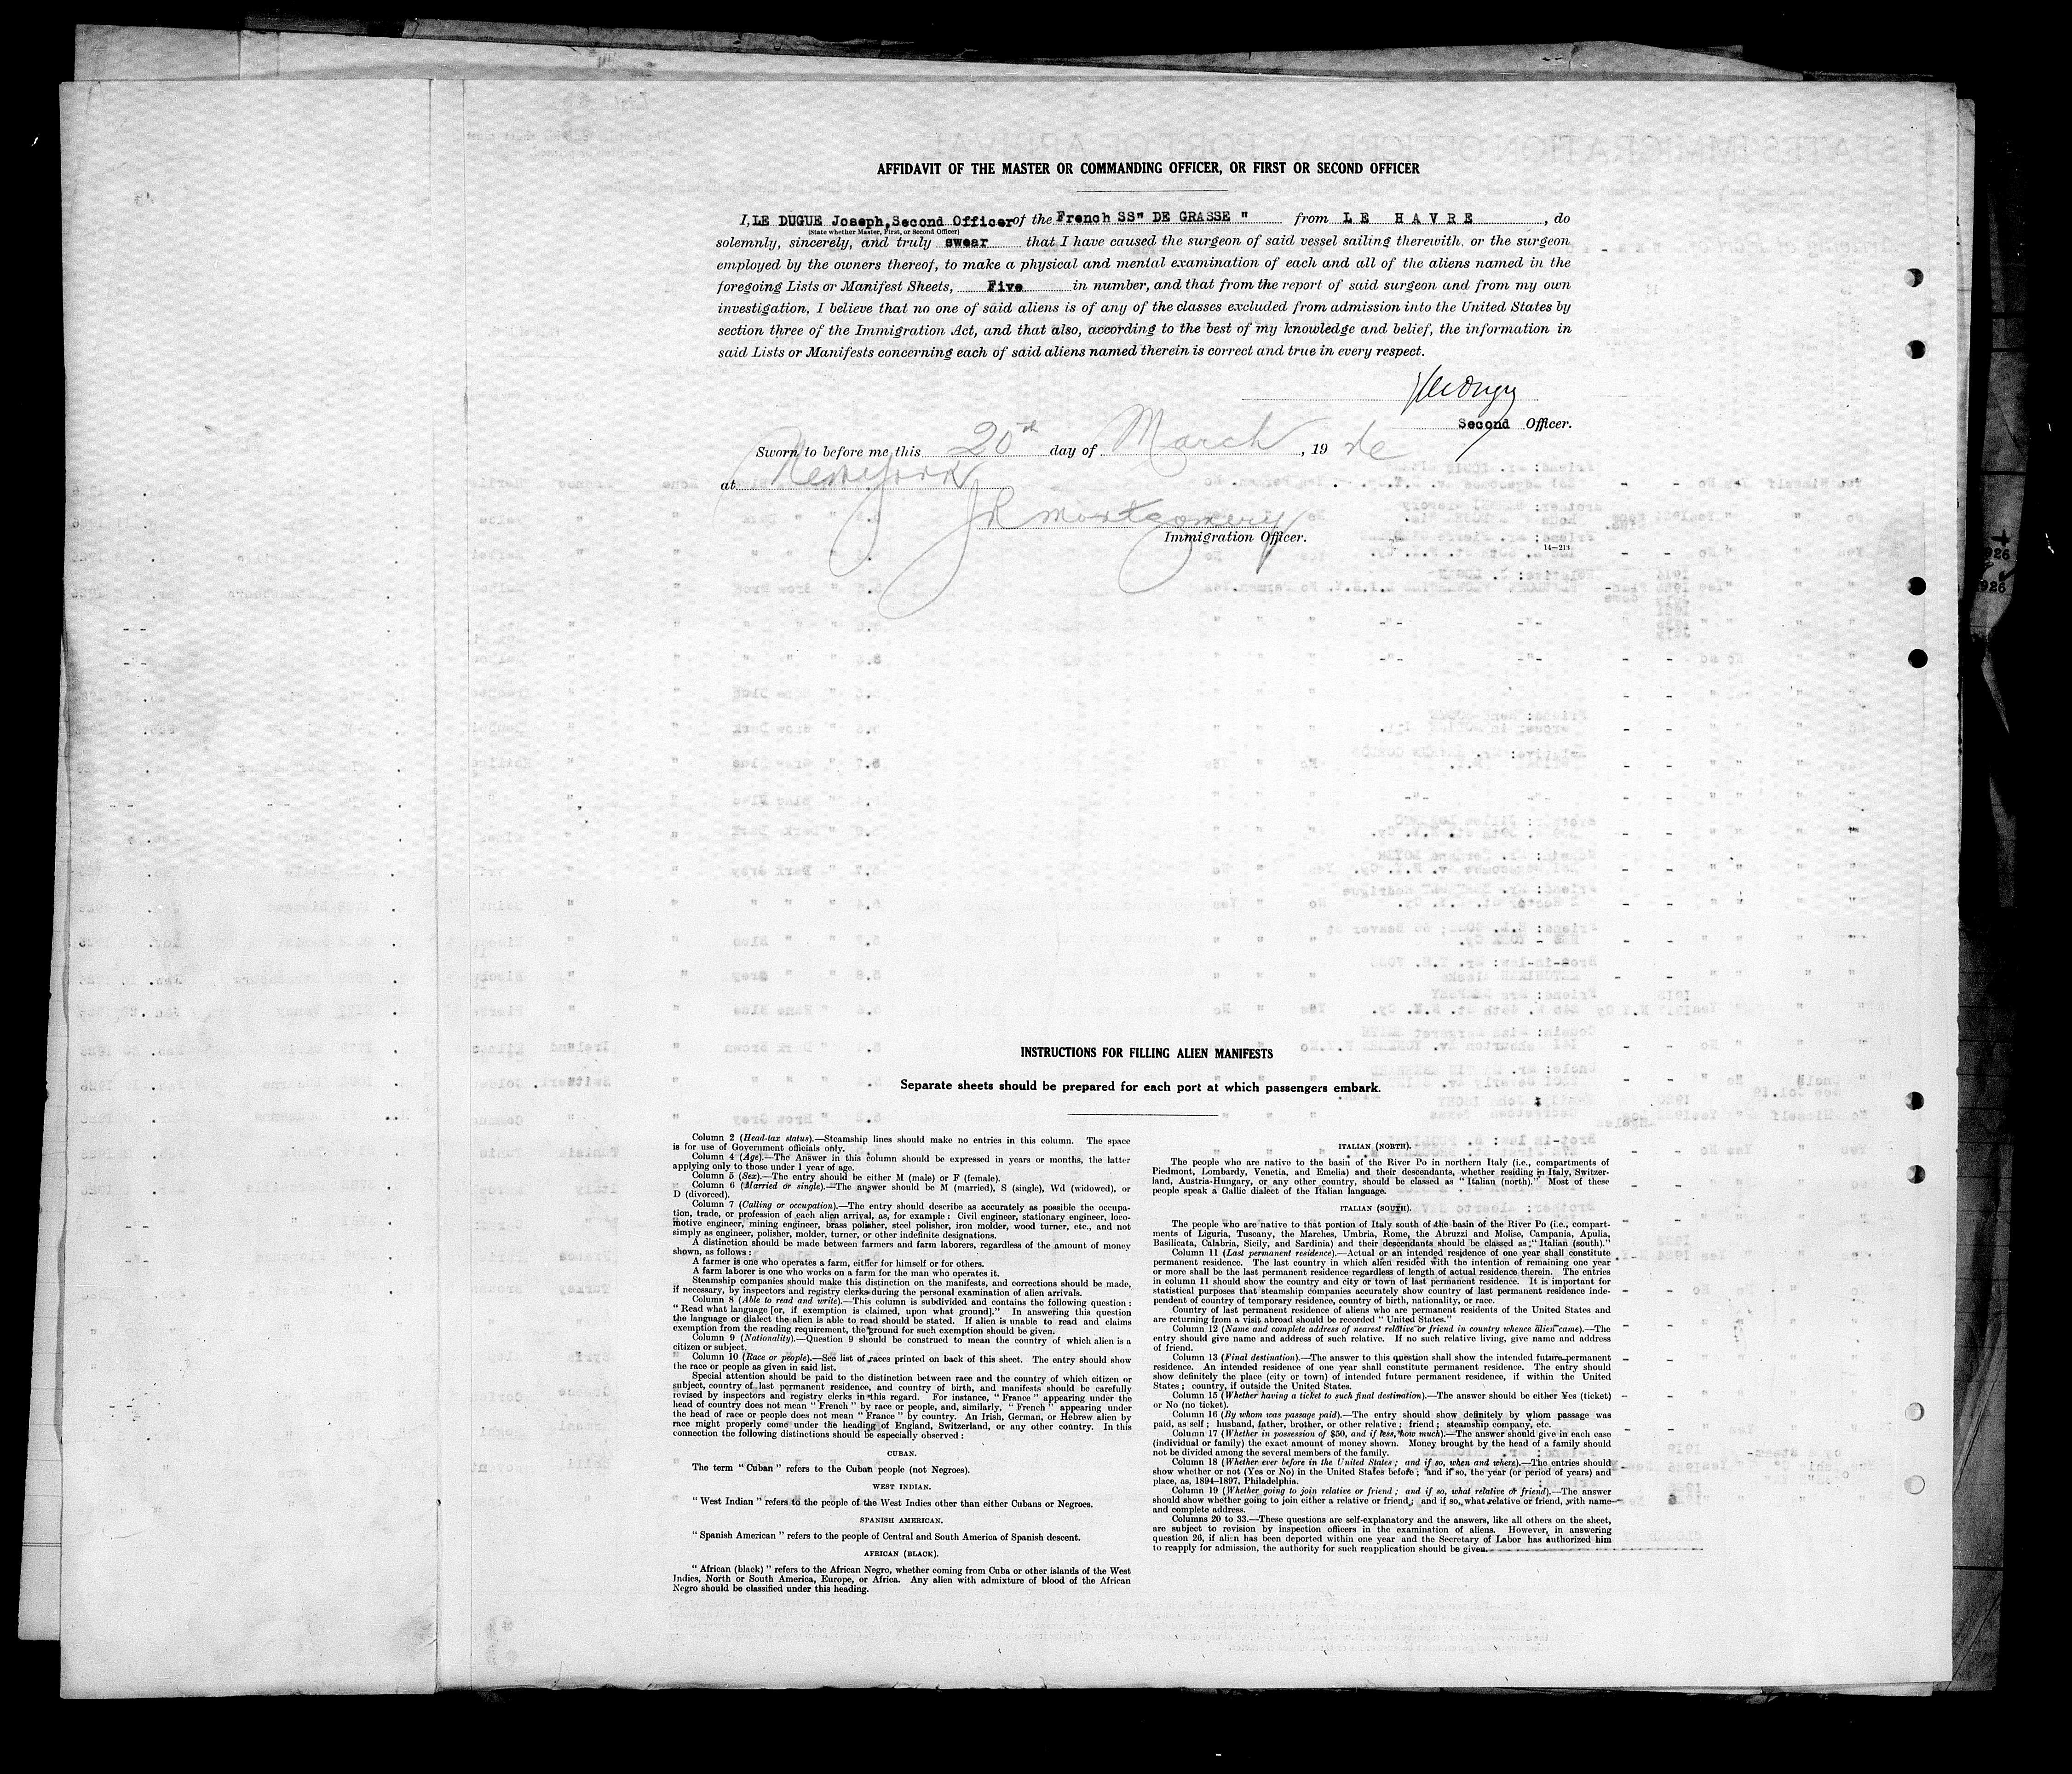 AFFIDAVIT OF THE MASTER OR COMMANDING OFFICER, OR FIRST OR SECOND OFFICER
I, LE DUGUE Joseph, Second Officer of the French SS" DE GRASSE " from LE HAVRE, do
(State whether Master, First, or Second Officer)
solemnly, sincerely, and truly swear that I have caused the surgeon of said vessel sailing therewith, or the surgeon
employed by the owners thereof, to make a physical and mental examination of each and all of the aliens named in the
foregoing Lists or Manifest Sheets, Five in number, and that from the report of said surgeon and from my own
investigation, I believe that no one of said aliens is of any of the classes excluded from admission into the United States by
section three of the Immigration Act, and that also, according to the best of my knowledge and belief, the information in
said Lists or Manifests concerning each of said aliens named therein is correct and true in every respect.
Second Officer.
Sworn to before me this 20th day of March, 19
at New York
JR Montgomery
Immigration Officer.
14—213
INSTRUCTIONS FOR FILLING ALIEN MANIFESTS
Separate sheets should be prepared for each port at which passengers embark.
Column 2 (Head-tax status).—Steamship lines should make no entries in this column. The space
is for use of Government officials only.
Column 4 (Age).—The Answer in this column should be expressed in years or months, the latter
applying only to those under 1 year of age.
Column 5 (Sex).—The entry should be either M (male) or F (female).
Column 6 (Married or single).—The answer should be M (married), S (single), Wd (widowed), or
D (divorced).
Column 7 (Calling or occupation).—The entry should describe as accurately as possible the occupa-
tion, trade, or profession of each alien arrival, as, for example: Civil engineer, stationary engineer, loco-
motive engineer, mining engineer, brass polisher, steel polisher, iron molder, wood turner, etc., and not
simply as engineer, polisher, molder, turner, or other indefinite designations.
A distinction should be made between farmers and farm laborers, regardless of the amount of money
shown, as follows:
A farmer is one who operates a farm, either for himself or for others.
A farm laborer is one who works on a farm for the man who operates it.
Steamship companies should make this distinction on the manifests, and corrections should be made,
if necessary, by inspectors and registry clerks during the personal examination of alien arrivals.
Column 8 (Able to read and write).—This column is subdivided and contains the following question:
"Read what language [or, if exemption is claimed, upon what ground]." In answering this question
the language or dialect the alien is able to read should be stated. If alien is unable to read and claims
exemption from the reading requirement, the ground for such exemption should be given.
Column 9 (Nationality).—Question 9 should be construed to mean the country of which alien is a
citizen or subject.
Column 10 (Race or people).—See list of races printed on back of this sheet. The entry should show
the race or people as given in said list.
Special attention should be paid to the distinction between race and the country of which citizen or
subject, country of last permanent residence, and country of birth, and manifests should be carefully
revised by inspectors and registry clerks in this regard. For instance, "France" appearing under the
head of country does not mean "French" by race or people, and, similarly, "French" appearing under
the head of race or people does not mean "France" by country. An Irish, German, or Hebrew alien by
race might properly come under the heading of England, Switzerland, or any other country. In this
connection the following distinctions should be especially observed:
CUBAN.
The term "Cuban" refers to the Cuban people (not Negroes).
WEST INDIAN.
"West Indian" refers to the people of the West Indies other than either Cubans or Negroes.
SPANISH AMERICAN.
"Spanish American" refers to the people of Central and South America of Spanish descent.
AFRICAN (BLACK).
"African (black)" refers to the African Negro, whether coming from Cuba or other islands of the West
Indies, North or South America, Europe, or Africa. Any alien with admixture of blood of the African
Negro should be classified under this heading.
ITALIAN (NORTH).
The people who are native to the basin of the River Po in northern Italy (i.e., compartments of
Piedmont, Lombardy, Venetia, and Emelia) and their descendants, whether residing in Italy, Switzer-
land, Austria-Hungary, or any other country, should be classed as "Italian (north)." Most of these
people speak a Gallic dialect of the Italian language.
ITALIAN (SOUTH).
The people who are native to that portion of Italy south of the basin of the River Po (i.e., compart-
ments of Liguria, Tuscany, the Marches, Umbria, Rome, the Abruzzi and Molise, Campania, Apulia,
Basilicata, Calabria, Sicily, and Sardinia) and their descendants should be classed as "Italian (south)."
Column 11 (Last permanent residence).—Actual or an intended residence of one year shall constitute
permanent residence. The last country in which alien resided with the intention of remaining one year
or more shall be the last permanent residence regardless of length of actual residence therein. The entries
in column 11 should show the country and city or town of last permanent residence. It is important for
statistical purposes that steamship companies accurately show country of last permanent residence inde-
pendent of country of temporary residence, country of birth, nationality, or race.
Country of last permanent residence of aliens who are permanent residents of the United States and
are returning from a visit abroad should be recorded "United States."
Column 12 (Name and complete address of nearest relative or friend in country whence alien came).—The
entry should give name and address of such relative. If no such relative living, give name and address
of friend.
Column 13 (Final destination).—The answer to this question shall show the intended future permanent
residence. An intended residence of one year shall constitute permanent residence. The entry should
show definitely the place (city or town) of intended future permanent residence, if within the United
States; country, if outside the United States.
Column 15 (Whether having a ticket to such final destination).—The answer should be either Yes (ticket)
or No (no ticket).
Column 16 (By whom was passage paid).—The entry should show definitely by whom passage was
paid, as self; husband, father, brother, or other relative; friend; steamship company, etc.
Column 17 (Whether in possession of $50, and if less, how much).—The answer should give in each case
(individual or family) the exact amount of money shown. Money brought by the head of a family should
not be divided among the several members of the family.
Column 18 (Whether ever before in the United States; and if so, when and where).—The entries should
show whether or not (Yes or No) in the United States before; and if so, the year (or period of years) and
place, as, 1894-1897, Philadelphia.
Column 19 (Whether going to join relative or friend; and if so, what relative or friend).—The answer
should show whether going to join either a relative or friend; and if so, what relative or friend, with name
and complete address.
Columns 20 to 33.—These questions are self-explanatory and the answers, like all others on the sheet,
are subject to revision by inspection officers in the examination of aliens. However, in answering
question 26, if alien has been deported within one year and the Secretary of Labor has authorized him
to reapply for admission, the authority for such reapplication should be given.